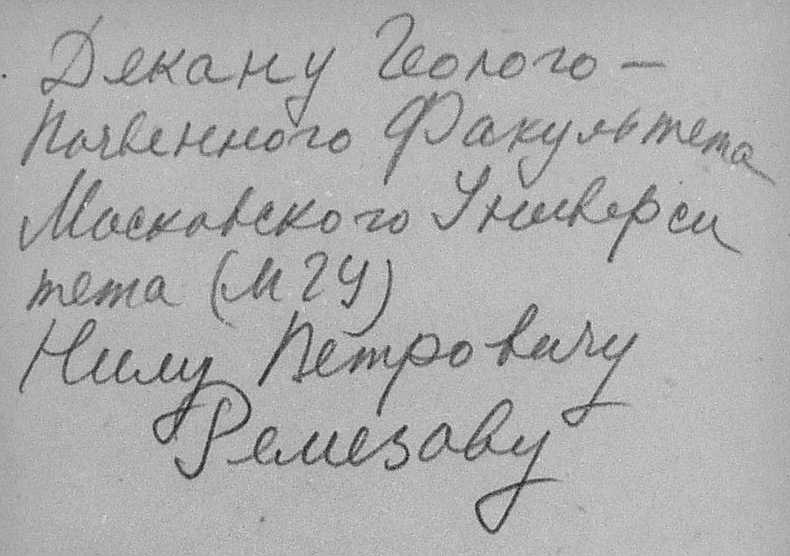 Декану Геолого-
Почвенного Факультета
Московского Универси
тета (МГУ)
Нилу Петровичу
Ремезову